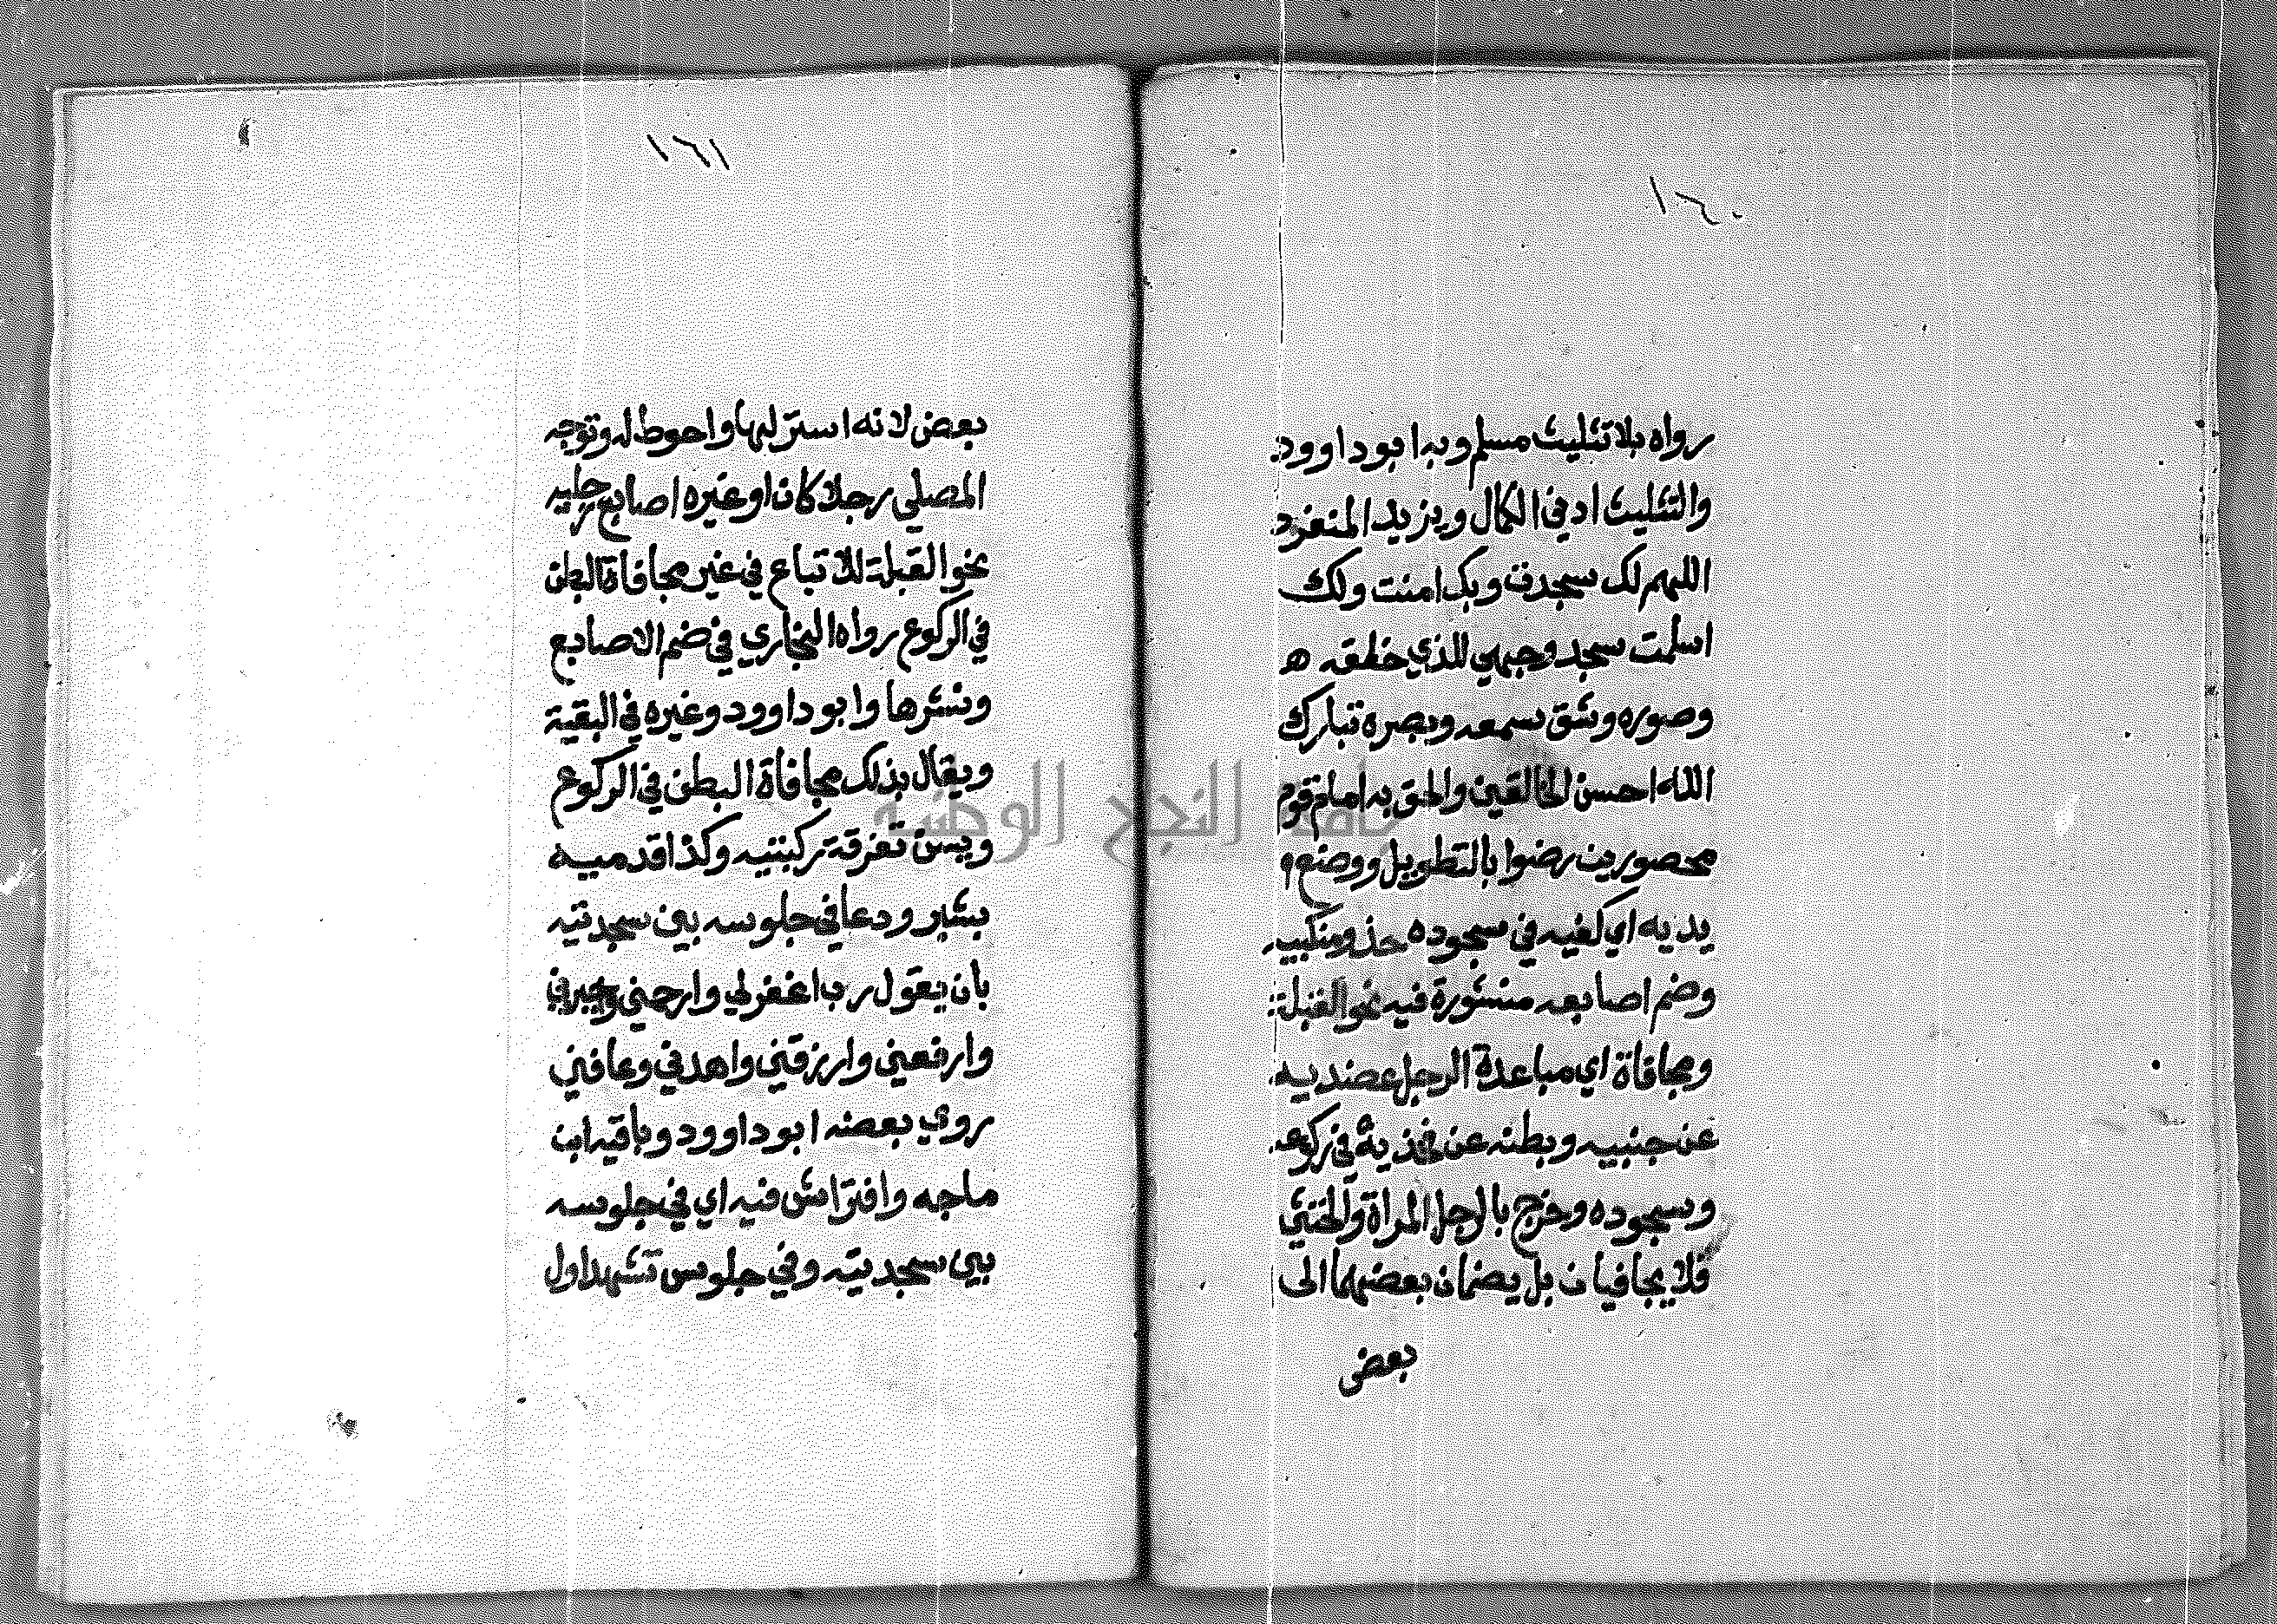 ١٦٠
رواه بلا تثليث مسلم وبه ابو داوود
والتثليث ادنى الكمال ويزيد المنفرد
اللهم لك سجدت وبك امنت ولك
اسلمت سجد وجهي للذي خلقه ه
وصوره وشق سمعه وبصره تبارك
الله احسن الخالقين والحق به امام قوم
محصورين رضوا بالتطويل ووضع
يديه اي كفيه في سجوده حذو منكبيه
وضم اصابعه منشورة فيه نحو القبلة
ومجافاة اي مباعدة الرجل عضديه
عن جنبيه وبطنه عن فخذيه في ركوعه
وسجوده وخرج بالرجل المراة والخنثى
فلا يجافيان بل يضمان بعضهما الى
بعض
١٦١
بعض لانه استر لهما واحوط له وتوجه
المصلي رجلا كان او غيره اصابع رجليه
نحو القبلة للاتباع في غير مجافاة البطن
في الركوع رواه البخاري في ضم الاصابع
ونشرها وابو داوود وغيره في البقية
ويقال بذلك مجافاة البطن في الركوع
ويسن تفرقة ركبتيه وكذا قدميه
بشبر ودعا في جلوسه بين سجدتيه
بان يقول رب اغفرلي وارحمني واجبرني
وارفعني وارزقني واهدني وعافني
روي بعضه ابو داوود وباقيه ابن
ماجه وافتراش فيه اي في جلوسه
بين سجدتيه وفي جلوس تشهد اول
جامعة النجاح الوطنية